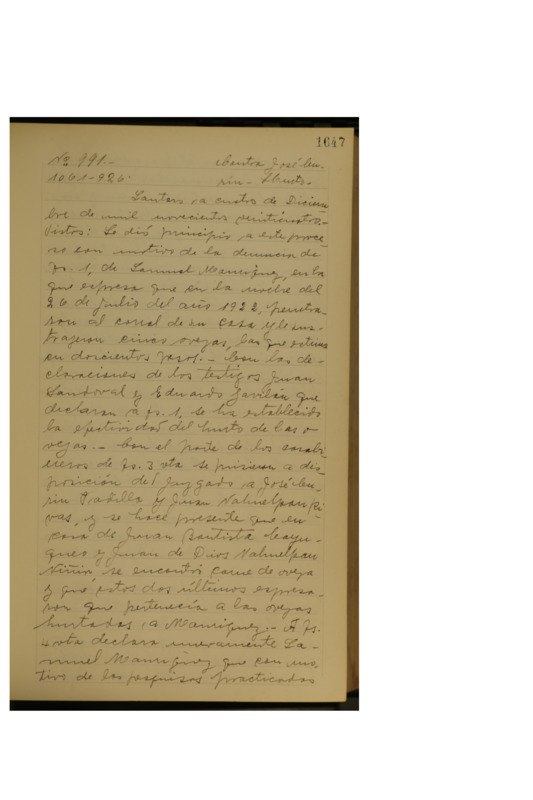 1647
No 991.-
Contra José Cen-
1061-926.
rin - Hurto.-
Lautaro, a cuatro de Diciem-
bre de mil novecientos veinticuatro.-
Vistos: Se dió principio a este proce-
so con motivo de la denuncia de
fs. 1, de Samuel Manriquez, en la
que expresa que en la noche del
26 de julio del año 1922, penetra-
ron al corral de su casa y le sus-
trajeron cinco ovejas, las que estima
en doscientos pesos.- Con las de-
claraciones de los testigos Juan
Sandoval y Eduardo Gavilán que
declaran a fs. 1, se ha establecido
la efectividad del hurto de las o-
vejas.- Con el parte de los carabi-
neros de fs. 3 vta se pusieron a dis-
posición del Juzgado a José Cen-
rin Padilla y Juan Nahuelpan Ri-
vas, y se hace presente que en
casa de Juan Bautista
y Juan de Dios Nahuelpan
se encontró carne de oveja
y que estos dos últimos expresa-
ron que pertenecía a las ovejas
hurtadas a Manriquez.- A fs.
4 vta declara nuevamente Sa-
muel Manriquez que con mo-
tivo de las pesquisas practicadas